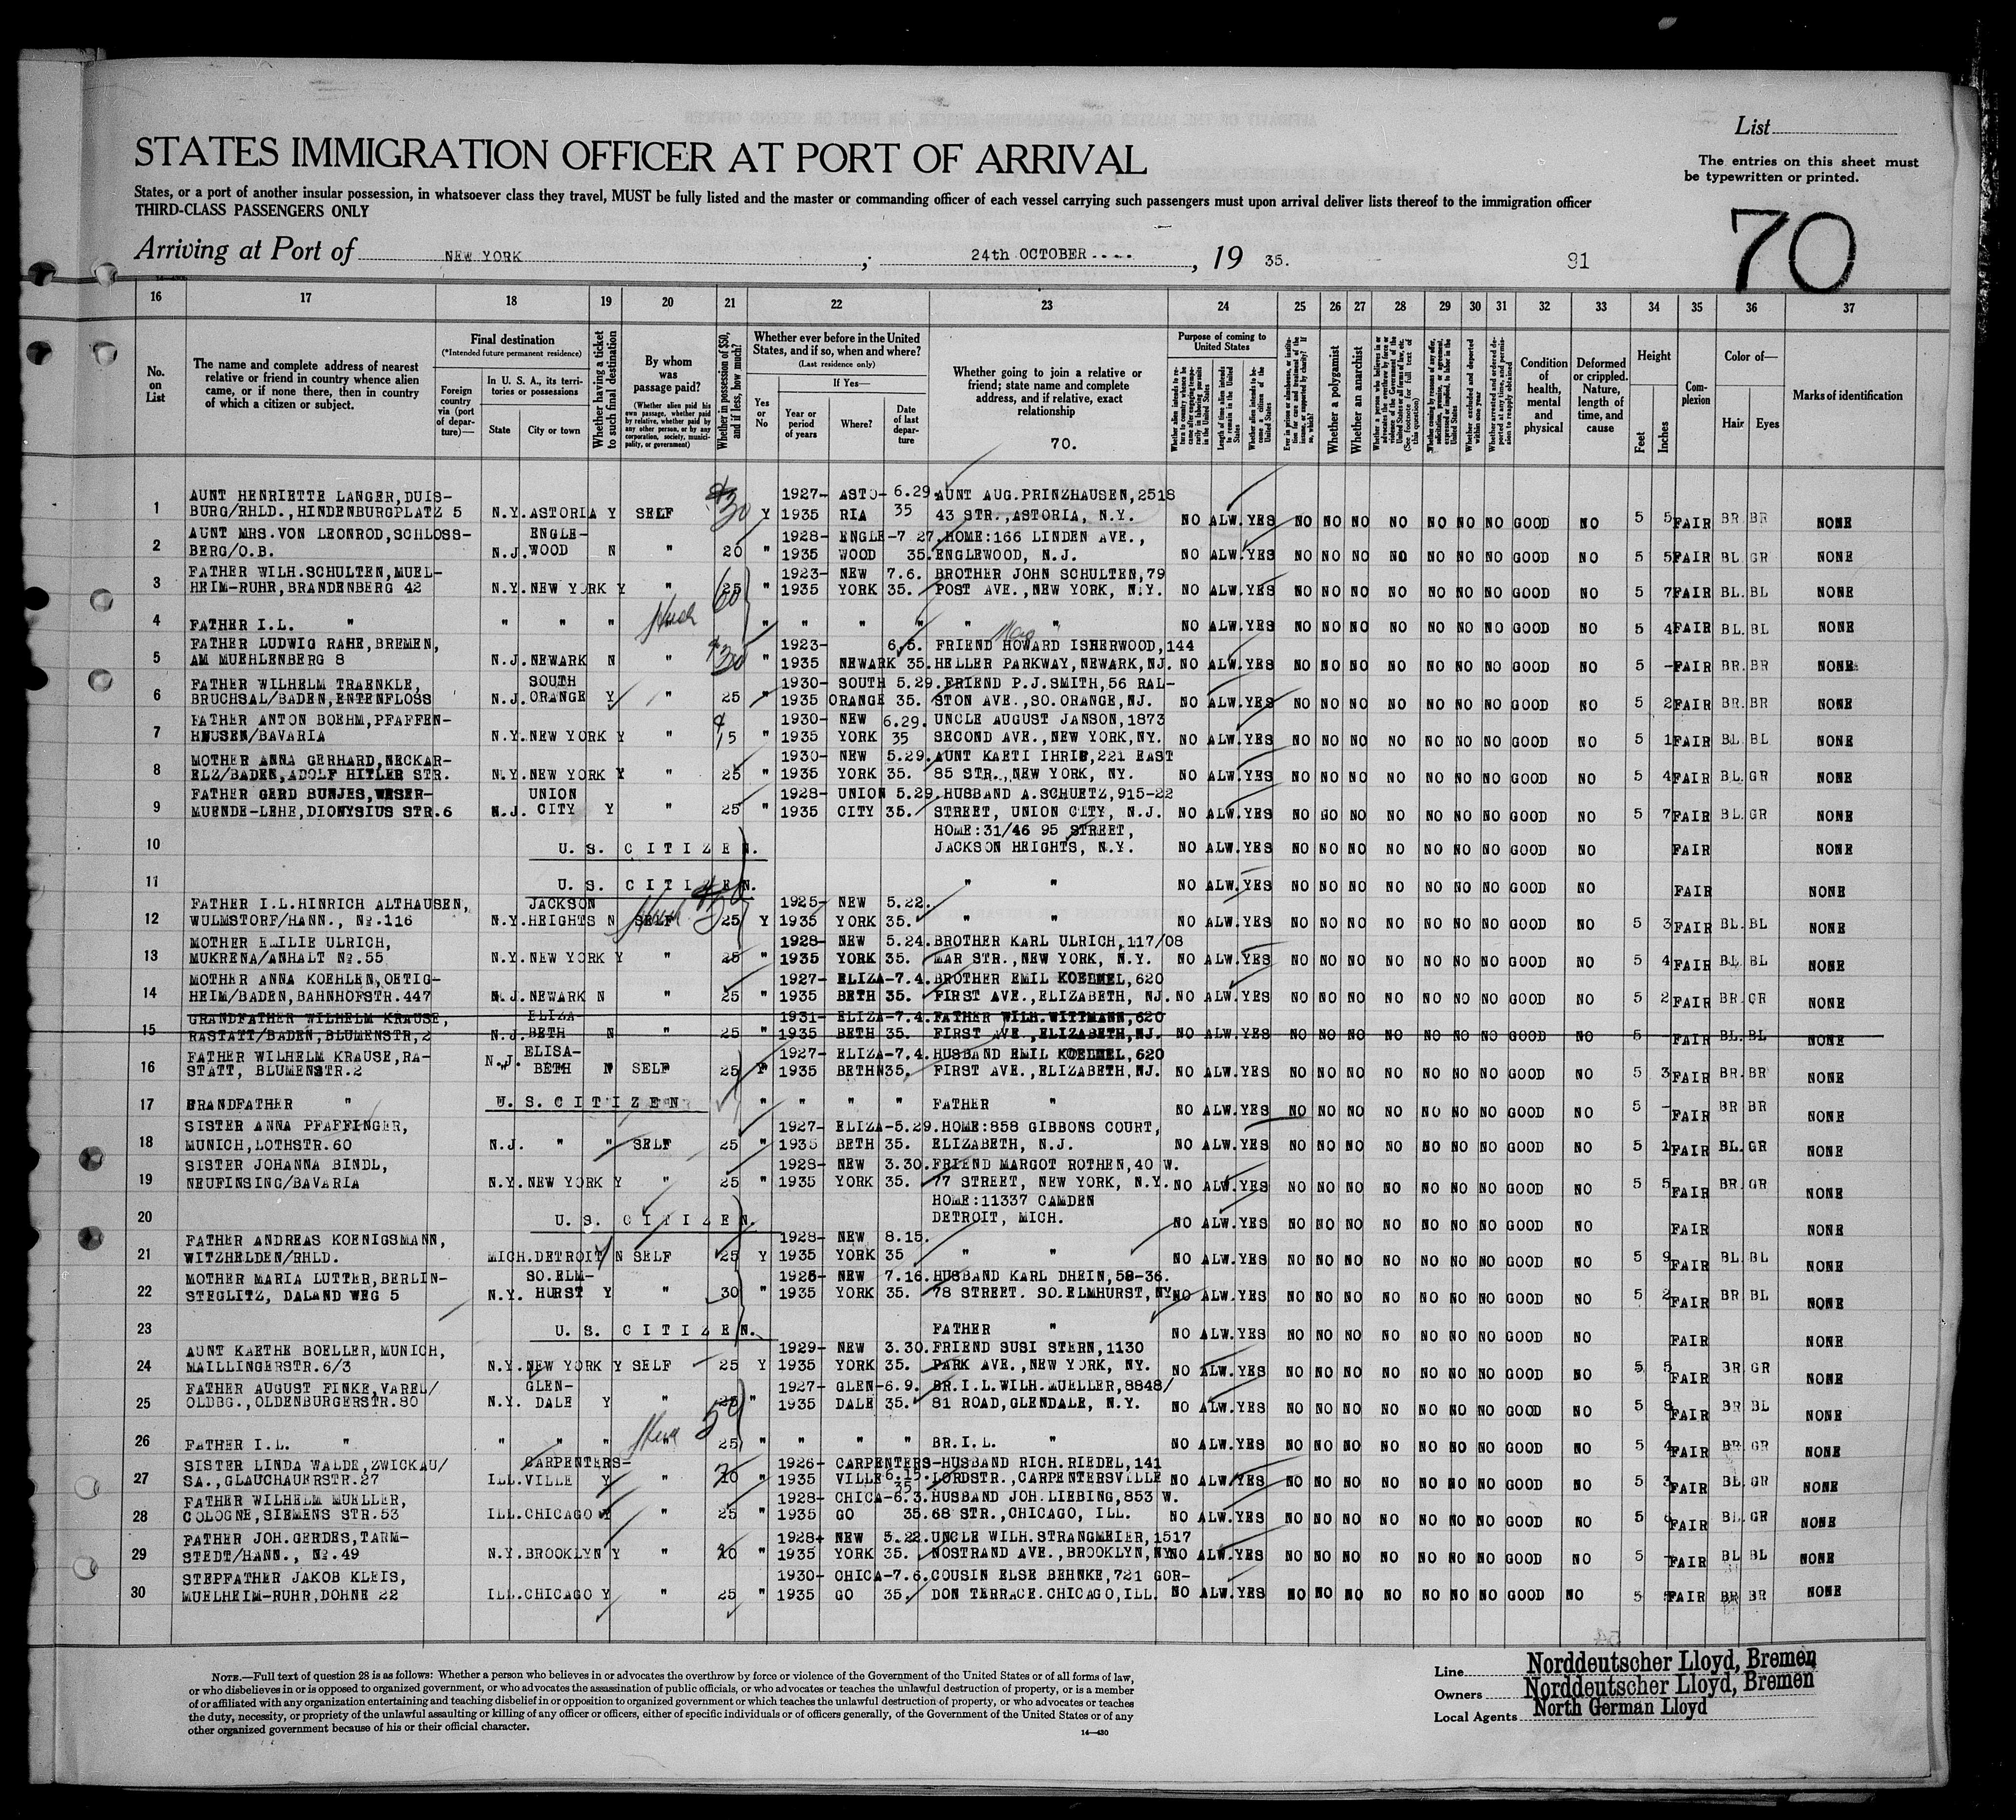 List
STATES IMMIGRATION OFFICER AT PORT OF ARRIVAL
The entries on this sheet must
be typewritten or printed.
States, or a port of another insular possession, in whatsoever class they travel, MUST be fully listed and the master or commanding officer of each vessel carrying such passengers must upon arrival deliver lists thereof to the immigration officer
THIRD-CLASS PASSENGERS ONLY
70
Arriving at Port of NEW YORK ; 24th OCTOBER , 19 35. 91
16 17 18 19 20 21 22 23 24 25 26 27 28 29 30 31 32 33 34 35 36 37
No. on List
The name and complete address of nearest relative or friend in country whence alien came, or if none there, then in country of which a citizen or subject.
Final destination
(*Intended future permanent residence)
Foreign country via (port of departure)—
In U. S. A., its territories or possessions
State City or town
Whether having a ticket to such final destination
By whom was passage paid?
(Whether alien paid his own passage, whether paid by relative, whether paid by any other person, or by any corporation, society, municipality, or government)
Whether in possession of $50, and if less, how much?
Whether ever before in the United States, and if so, when and where?
(Last residence only)
Yes or No
If Yes—
Year or period of years Where? Date of last departure
Whether going to join a relative or friend; state name and complete address, and if relative, exact relationship
70.
Purpose of coming to United States
Whether a polygamist
Whether an anarchist
Condition of health, mental and physical
Deformed or crippled. Nature, length of time, and cause
Height
Feet Inches
Complexion
Color of—
Hair Eyes
Marks of identification
AUNT HENRIETTE LANGER,DUIS- 1927- ASTO- 6.29. AUNT AUG.PRINZHAUSEN,2518
1 BURG/RHLD.,HINDENBURGPLATZ 5 N.Y. ASTORIA Y SELF 30 Y 1935 RIA 35 43 STR.,ASTORIA, N.Y. NO ALW. YES NO NO NO NO NO NO NO GOOD NO 5 5 FAIR BR BR NONE
AUNT MRS.VON LEONROD,SCHLOSS- ENGLE- 1928- ENGLE- 7 27. HOME:166 LINDEN AVE.,
2 BERG/O.B. N.J. WOOD N " 20 " 1935 WOOD 35. ENGLEWOOD, N.J. NO ALW. YES NO NO NO NO NO NO NO GOOD NO 5 5 FAIR BL GR NONE
FATHER WILH.SCHULTEN,MUEL- 1923- NEW 7.6. BROTHER JOHN SCHULTEN,79
3 HEIM-RUHR,BRANDENBERG 42 N.Y. NEW YORK Y " 25 60 " 1935 YORK 35. POST AVE.,NEW YORK, N.Y. NO ALW. YES NO NO NO NO NO NO NO GOOD NO 5 7 FAIR BL. BL NONE
4 FATHER I.L. " " " " " " " " " " NO ALW. YES NO NO NO NO NO NO NO GOOD NO 5 4 FAIR BL. BL NONE
FATHER LUDWIG RAHE,BREMEN, 1923- 6.5. FRIEND HOWARD ISHERWOOD,144
5 AM MUEHLENBERG 8 N.J. NEWARK N " 30 " 1935 NEWARK 35. HELLER PARKWAY,NEWARK,NJ. NO ALW. YES NO NO NO NO NO NO NO GOOD NO 5 - FAIR BR. BR NONE
FATHER WILHELM TRAENKLE, SOUTH 1930- SOUTH 5.29. FRIEND P.J.SMITH,56 RAL-
6 BRUCHSAL/BADEN,ENTENFLOSS N.J. ORANGE Y " 25 " 1935 ORANGE 35. STON AVE.,SO.ORANGE,NJ. NO ALW. YES NO NO NO NO NO NO NO GOOD NO 5 2 FAIR BR. BR NONE
FATHER ANTON BOEHM,PFAFFEN- 1930- NEW 6.29. UNCLE AUGUST JANSON,1873
7 HNUSEN/BAVARIA N.Y. NEW YORK Y " 15 " 1935 YORK 35 SECOND AVE.,NEW YORK,NY. NO ALW. YES NO NO NO NO NO NO NO GOOD NO 5 1 FAIR BL. BL NONE
MOTHER ANNA GERHARD,NECKAR- 1930- NEW 5.29. AUNT KAETI IHRIG,221 EAST
8 ELZ/BADEN,ADOLF HITLER STR. N.Y. NEW YORK Y " 25 " 1935 YORK 35. 85 STR.,NEW YORK, NY. NO ALW. YES NO NO NO NO NO NO NO GOOD NO 5 4 FAIR BL. GR NONE
FATHER GERD BUNJES,WESER- UNION 1928- UNION 5.29. HUSBAND A.SCHUETZ,915-22
9 MUENDE-LEHE,DIONYSIUS STR.6 N.J. CITY Y " 25 " 1935 CITY 35. STREET, UNION CITY, N.J. NO ALW. YES NO GO NO NO NO NO NO GOOD NO 5 7 FAIR BL. GR NONE
HOME:31/46 95 STREET,
10 U. S. CITIZEN. JACKSON HEIGHTS, N.Y. NO ALW. YES NO NO NO NO NO NO NO GOOD NO FAIR NONE
11 U. S. CITIZEN. " " NO ALW. YES NO NO NO NO NO NO NO GOOD NO FAIR NONE
FATHER I.L.HINRICH ALTHAUSEN, JACKSON 1925- NEW 5.22.
12 WULMSTORF/HANN., No.116 N.Y. HEIGHTS N SELF 25 Y 1935 YORK 35. " " NO ALW. YES NO NO NO NO NO NO NO GOOD NO 5 3 FAIR BL. BL NONE
MOTHER EMILIE ULRICH, 1928- NEW 5.24. BROTHER KARL ULRICH,117/08
13 MUKRENA/ANHALT No.55 N.Y. NEW YORK Y " 25 " 1935 YORK 35. MAR STR.,NEW YORK, N.Y. NO ALW. YES NO NO NO NO NO NO NO GOOD NO 5 4 FAIR BL BL NONE
MOTHER ANNA KOEHLEN,OETIG- 1927- ELIZA- 7.4. BROTHER EMIL KOELMEL,620
14 HEIM/BADEN,BAHNHOFSTR.447 N.J. NEWARK N " 25 " 1935 BETH 35. FIRST AVE.,ELIZABETH, NJ. NO ALW. YES NO NO NO NO NO NO NO GOOD NO 5 2 FAIR BR. GR NONE
GRANDFATHER WILHELM KRAUSE, ELIZA- 1931- ELIZA- 7.4. FATHER WILH.WITTMANN,620
15 RASTATT/BADEN,BLUMENSTR,2 N.J. BETH N " 25 " 1935 BETH 35. FIRST AVE ,ELIZABETH,NJ. NO ALW. YES NO NO NO NO NO NO NO GOOD NO 5 - FAIR BL. BL NONE
FATHER WILHELM KRAUSE,RA- N.J. ELISA- 1927- ELIZA- 7.4. HUSBAND EMIL KOELMEL,620
16 STATT, BLUMENSTR.2 " BETH N SELF 25 Y 1935 BETH 35. FIRST AVE.,ELIZABETH,NJ. NO ALW. YES NO NO NO NO NO NO NO GOOD NO 5 3 FAIR BR. BR NONE
17 GRANDFATHER " U. S. CITIZEN " " " " FATHER " NO ALW. YES NO NO NO NO NO NO NO GOOD NO 5 - FAIR BR BR NONE
SISTER ANNA PFAFFINGER, 1927- ELIZA- 5.29. HOME:858 GIBBONS COURT,
18 MUNICH,LOTHSTR.60 N.J. " " SELF 25 " 1935 BETH 35. ELIZABETH, N.J. NO ALW. YES NO NO NO NO NO NO NO GOOD NO 5 1 FAIR BL. GR NONE
SISTER JOHANNA BINDL, 1928- NEW 3.30. FRIEND MARGOT ROTHEN,40 W.
19 NEUFINSING/BAVARIA N.Y. NEW YORK Y " 25 " 1935 YORK 35. 77 STREET, NEW YORK, N.Y. NO ALW. YES NO NO NO NO NO NO NO GOOD NO 5 5 FAIR BR. GR NONE
HOME:11337 CAMDEN
20 U. S. CITIZEN. DETROIT, MICH. NO ALW. YES NO NO NO NO NO NO NO GOOD NO FAIR NONE
FATHER ANDREAS KOENIGSMANN, 1928- NEW 8.15.
21 WITZHELDEN/RHLD. MICH. DETROIT N SELF 25 Y 1935 YORK 35 " " NO ALW. YES NO NO NO NO NO NO NO GOOD NO 5 9 FAIR BL. BL NONE
MOTHER MARIA LUTTER,BERLIN- SO.ELM- 1926- NEW 7.16. HUSBAND KARL DHEIN,58-36.
22 STEGLITZ, DALAND WEG 5 N.Y. HURST Y " 30 " 1935 YORK 35. 78 STREET. SO.ELMHURST, NY NO ALW. YES NO NO NO NO NO NO NO GOOD NO 5 2 FAIR BR BL NONE
23 U. S. CITIZEN. FATHER " NO ALW. YES NO NO NO NO NO NO NO GOOD NO FAIR NONE
AUNT KAETHE BOELLER,MUNICH, 1929- NEW 3.30. FRIEND SUSI STERN,1130
24 MAILLINGERSTR.6/3 N.Y. NEW YORK Y SELF 25 Y 1935 YORK 35. PARK AVE.,NEW YORK, NY. NO ALW. YES NO NO NO NO NO NO NO GOOD NO 5 5 FAIR BR GR NONE
FATHER AUGUST FINKE,VAREL/ GLEN- 1927- GLEN- 6.9. BR.I.L.WILH.MUELLER,8848/
25 OLDBG.,OLDENBURGERSTR.80 N.Y. DALE Y " 25 50 " 1935 DALE 35. 81 ROAD,GLENDALE, N.Y. NO ALW. YES NO NO NO NO NO NO NO GOOD NO 5 8 FAIR BR BL NONE
26 FATHER I.L. " " " " 25 " " " " BR.I.L. " NO ALW. YES NO NO NO NO NO NO NO GOOD NO 5 4 FAIR BR. GR NONE
SISTER LINDA WALDE,ZWICKAU/ CARPENTERS- 1926- CARPENTERS- HUSBAND RICH.RIEDEL,141
27 SA.,GLAUCHAUERSTR.27 ILL. VILLE Y " 20 " 1935 VILLE 6.15. 35 LORDSTR.,CARPENTERSVILLE NO ALW. YES NO NO NO NO NO NO NO GOOD NO 5 3 FAIR BL. GR NONE
FATHER WILHELM MUELLER, 1928- CHICA- 6.3. HUSBAND JOH.LIEBING,853 W.
28 COLOGNE,SIEMENS STR.53 ILL. CHICAGO Y " 25 " 1935 GO 35. 68 STR.,CHICAGO, ILL. NO ALW. YES NO NO NO NO NO NO NO GOOD NO 5 FAIR BL. GR NONE
FATHER JOH.GERDES,TARM- 1928- NEW 5.22. UNCLE WILH.STRANGMEIER,1517
29 STEDT/HANN., No.49 N.Y. BROOKLYN Y " 20 " 1935 YORK 35. NOSTRAND AVE.,BROOKLYN,NY NO ALW. YES NO NO NO NO NO NO NO GOOD NO 5 - FAIR BL BL NONE
STEPFATHER JAKOB KLEIS, 1930- CHICA- 7.6. COUSIN ELSE BEHNKE,721 GOR-
30 MUELHEIM-RUHR,DOHNE 22 ILL. CHICAGO Y " 25 " 1935 GO 35. DON TERRACE.CHICAGO,ILL. NO ALW. YES NO NO NO NO NO NO NO GOOD NO 5 5 FAIR BR BR NONE
NOTE.—Full text of question 28 is as follows: Whether a person who believes in or advocates the overthrow by force or violence of the Government of the United States or of all forms of law,
or who disbelieves in or is opposed to organized government, or who advocates the assassination of public officials, or who advocates or teaches the unlawful destruction of property, or is a member
of or affiliated with any organization entertaining and teaching disbelief in or opposition to organized government or which teaches the unlawful destruction of property, or who advocates or teaches
the duty, necessity, or propriety of the unlawful assaulting or killing of any officer or officers, either of specific individuals or of officers generally, of the Government of the United States or of any
other organized government because of his or their official character.
14—430
Line Norddeutscher Lloyd, Bremen
Owners Norddeutscher Lloyd, Bremen
Local Agents North German Lloyd